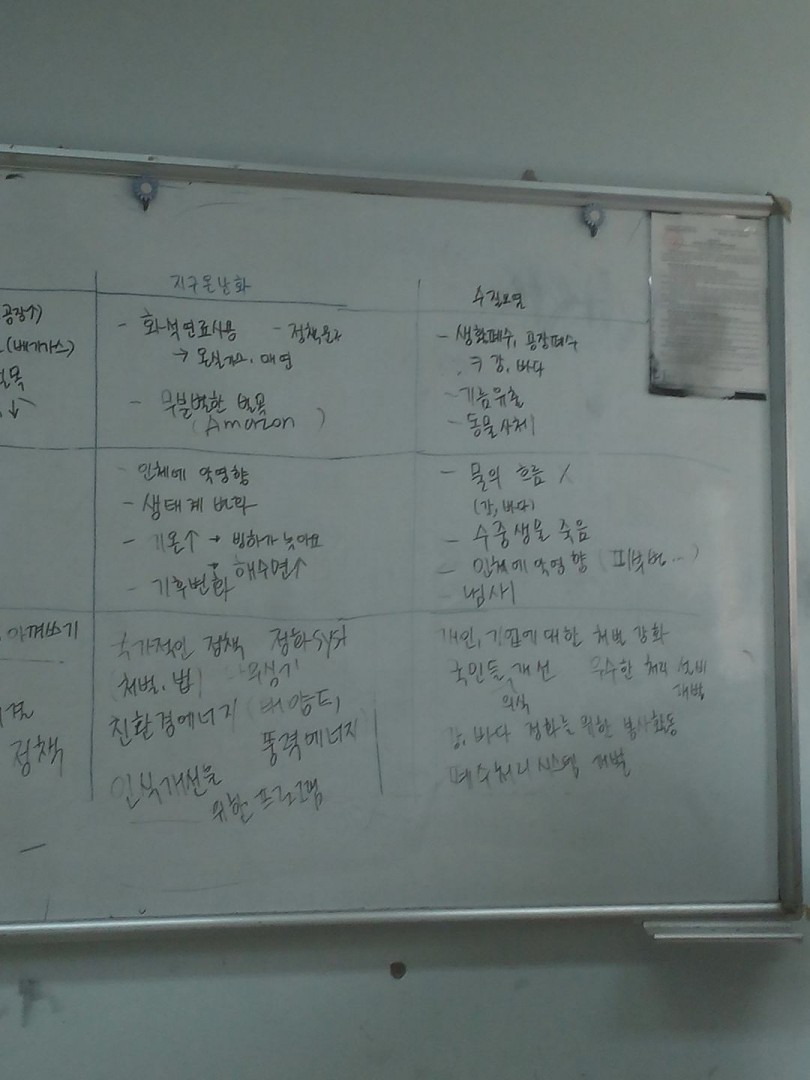 지구온난화
수질오염
공장↑)
(배기가스)
- 화석연료사용 - 정책문제
→ 온실가스, 매연
- 무분별한 벌목
(Amazon )
- 생활폐수, 공장폐수
강, 바다
- 기름유출
- 동물사체
- 인체에 악영향
- 생태계 변화
- 기온↑ → 빙하가 녹아요
해수면↑
- 기후변화
- 물의 흐름 X
(강, 바다)
- 수중생물 죽음
- 인체에 악영향 (피부병...)
- 냄새
아껴쓰기
정책
국가적인 정책 정화 syst
(처벌, 법)
친환경에너지 (태양E,
풍력에너지
인식개선을
위한 프로그램
개인, 기업에 대한 처벌 강화
국민들 개선 우수한 처리 설비
의식 개발
강, 바다 정화를 위한 봉사활동
폐수처리 시스템 개발